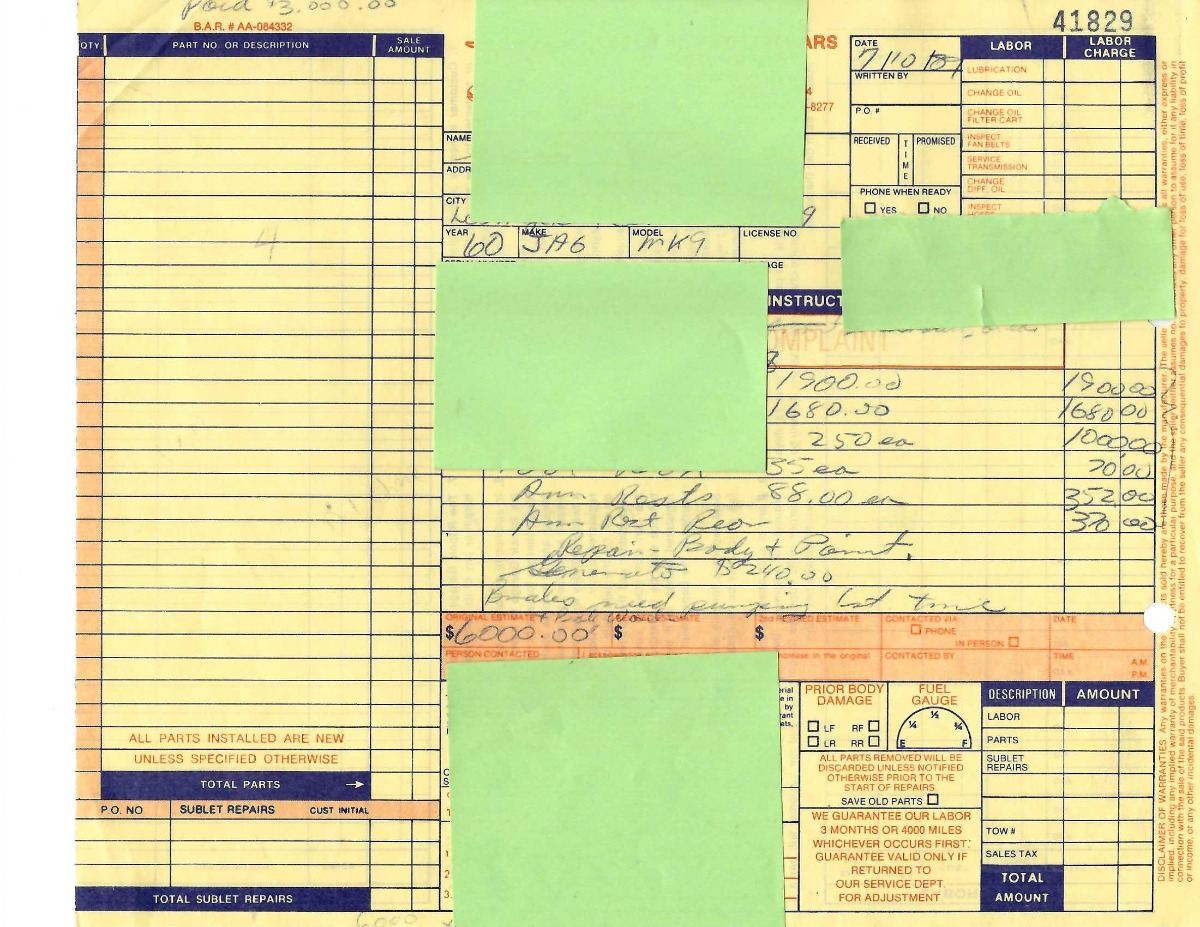 Paid $3,000.00
B.A.R. # AA-084332
41829
QTY. PART NO. OR DESCRIPTION SALE AMOUNT
ARS
-8277
DATE 7/10/89
WRITTEN BY
P.O. #
RECEIVED TIME PROMISED
PHONE WHEN READY
YES NO
LABOR LABOR CHARGE
LUBRICATION
CHANGE OIL
CHANGE OIL FILTER CART
INSPECT FAN BELTS
SERVICE TRANSMISSION
CHANGE DIFF. OIL
INSPECT
NAME
ADDR
CITY
9
YEAR 60 MAKE JAG MODEL MK9 LICENSE NO.
AGE
4
INSTRUCT
OMPLAINT
1900.00 1900.00
1680.00 1680.00
250 ea 1000.00
35 ea 70.00
Arm Rests 88.00 ea 352.00
Arm Rest Rear
Repair - Body + Paint.
Generator $240.00
Brakes need pumping 1st time
ORIGINAL ESTIMATE $6000.00
ESTIMATE $
2nd REVISED ESTIMATE $
CONTACTED VIA
PHONE
IN PERSON
DATE
PERSON CONTACTED
in the original
CONTACTED BY
TIME A.M. P.M.
ALL PARTS INSTALLED ARE NEW
UNLESS SPECIFIED OTHERWISE
TOTAL PARTS →
P.O. NO SUBLET REPAIRS CUST INITIAL
TOTAL SUBLET REPAIRS
6000
1
2
3.
PRIOR BODY DAMAGE
LF RF
LR RR
FUEL GAUGE
E ¼ ½ ¾ F
ALL PARTS REMOVED WILL BE
DISCARDED UNLESS NOTIFIED
OTHERWISE PRIOR TO THE
START OF REPAIRS
SAVE OLD PARTS
WE GUARANTEE OUR LABOR
3 MONTHS OR 4000 MILES
WHICHEVER OCCURS FIRST.
GUARANTEE VALID ONLY IF
RETURNED TO
OUR SERVICE DEPT.
FOR ADJUSTMENT
DESCRIPTION AMOUNT
LABOR
PARTS
SUBLET REPAIRS
TOW #
SALES TAX
TOTAL AMOUNT
DISCLAIMER OF WARRANTIES. Any warranties on the sold hereby are those made by the manufacturer. The seller all warranties, either express or
implied, including any implied warranty of merchantability or fitness for a particular purpose, and the seller neither assumes nor any other person to assume for it any liability in
connection with the sale of the said products. Buyer shall not be entitled to recover from the seller any consequential damages, damages to property, damage for loss of use, loss of time, loss of profit
or income, or any other incidental damages.